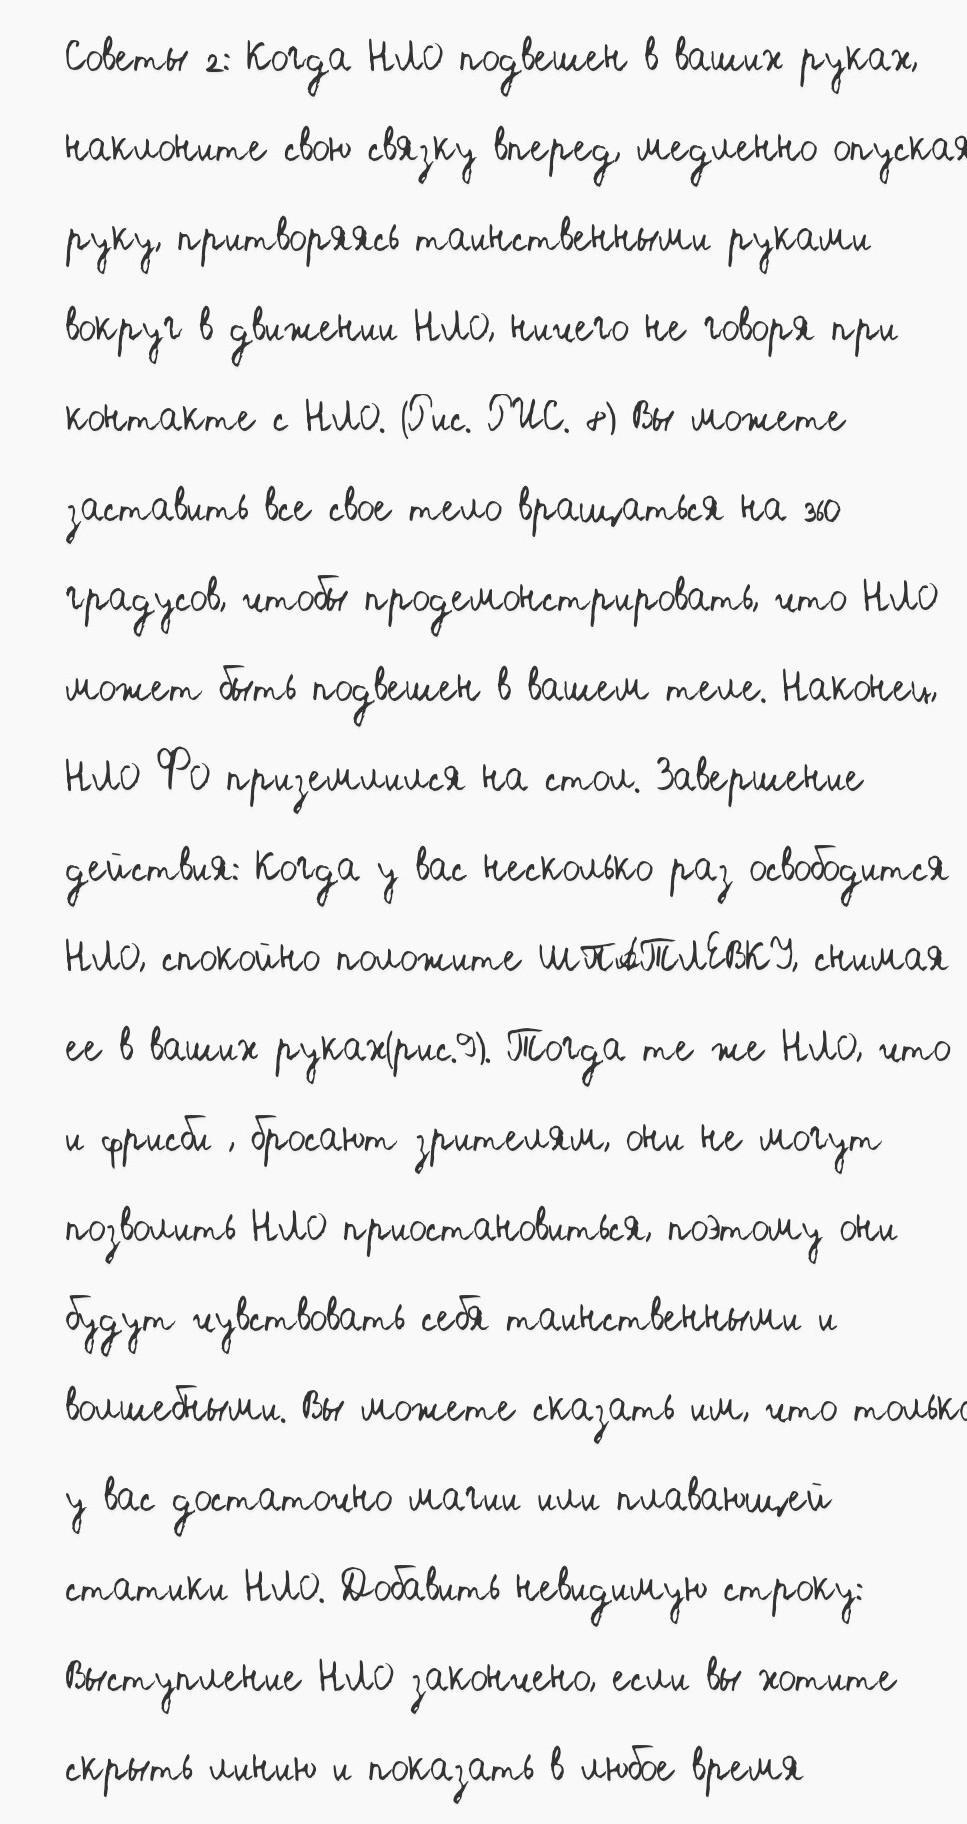 Советы 2: Когда НЛО подвешен в ваших руках,
наклоните свою связку вперед, медленно опуская
руку, притворяясь таинственными руками
вокруг в движении НЛО, ничего не говоря при
контакте с НЛО. (Гис. ГИС. 8) Вы можете
заставить все свое тело вращаться на 360
градусов, чтобы продемонстрировать, что НЛО
может быть подвешен в вашем теле. Наконец,
НЛО ФО приземлился на стол. Завершение
действия: Когда у вас несколько раз освободится
НЛО, спокойно положите ШПАТЛЕВКУ, снимая
ее в ваших руках(рис.9). Тогда те же НЛО, что
и фрисби , бросают зрителям, они не могут
позволить НЛО приостановиться, поэтому они
будут чувствовать себя таинственными и
волшебными. Вы можете сказать им, что только
у вас достаточно магии или плавающей
статики НЛО. Добавить невидимую строку:
Выступление НЛО закончено, если вы хотите
скрыть линию и показать в любое время